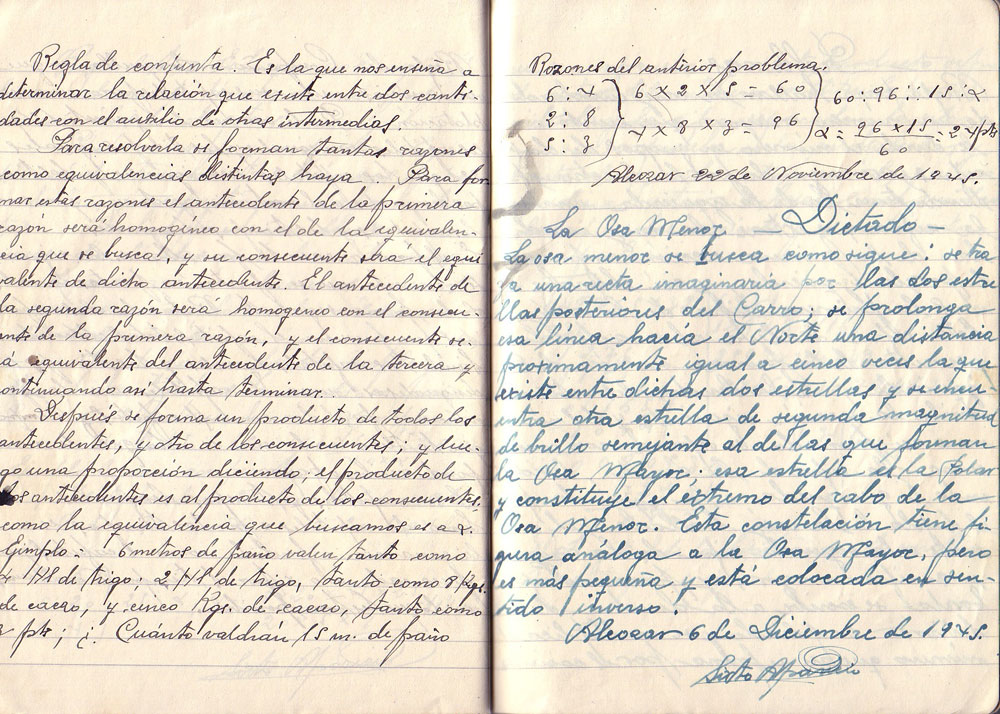 Regla de conjunta. Es la que nos enseña a
determinar la relación que existe entre dos canti-
dades con el auxilio de otras intermedias.
Para resolverla se forman tantas razones
como equivalencias distintas haya. Para for
mar estas razones el antecedente de la primera
razón será homogíneo con el de la equivalen-
cia que se busca, y su consecuente será el equi
valente de dicho antecedente. El antecedente de
la segunda razón será homogeneo con el consecu-
ente de la primera razón, y el consecuente se-
á equivalente del antecedente de la tercera y
ontinuando así hasta terminar.
Después se forma un producto de todos los
antecedentes, y otro de los consecuentes; y lue-
go una proporción diciendo; el producto de
los antecedentes es al producto de los consecuentes,
como la equivalencia que buscamos es a x.
Ejmplo: 6 metros de paño valen tanto como
4 Hl de trigo; 2 Hl de trigo, tanto como 8 Kgs.
de cacao, y cinco Kgs. de cacao, tanto como
3 pts; ¿: Cuánto valdrán 15 m. de paño
Razones del anterior problema.
6 : 4 } 6 x 2 x 5 = 60 } 60 : 96 :: 15 : x
2 : 8
5 : 3 } 4 x 8 x 3 = 96 } x = 96 x 15 / 60 = 24 pts
Alcozar 22 de Noviembre de 1945.
La Osa Menor — Dictado —
La osa menor se busca como sigue: se tra
la una recta imaginaria por llas dos estre
llas posteriores del Carro; se prolonga
esa línea hacia el Norte una distancia
proximamente igual a cinco veces la que
existe entre dichas dos estrellas y se encu-
entra otra estrella de segunda magnitud
de brillo semejante al de las que forman
la Osa Mayor; esa estrella es la Polar
y constituye el extremo del rabo de la
Osa Menor. Esta constelación tiene fi-
gura análoga a la Osa Mayor, pero
es más pequeña y está colocada en sen-
tido inverso.
Alcozar 6 de Diciembre de 1945.
Sixto Aparicio